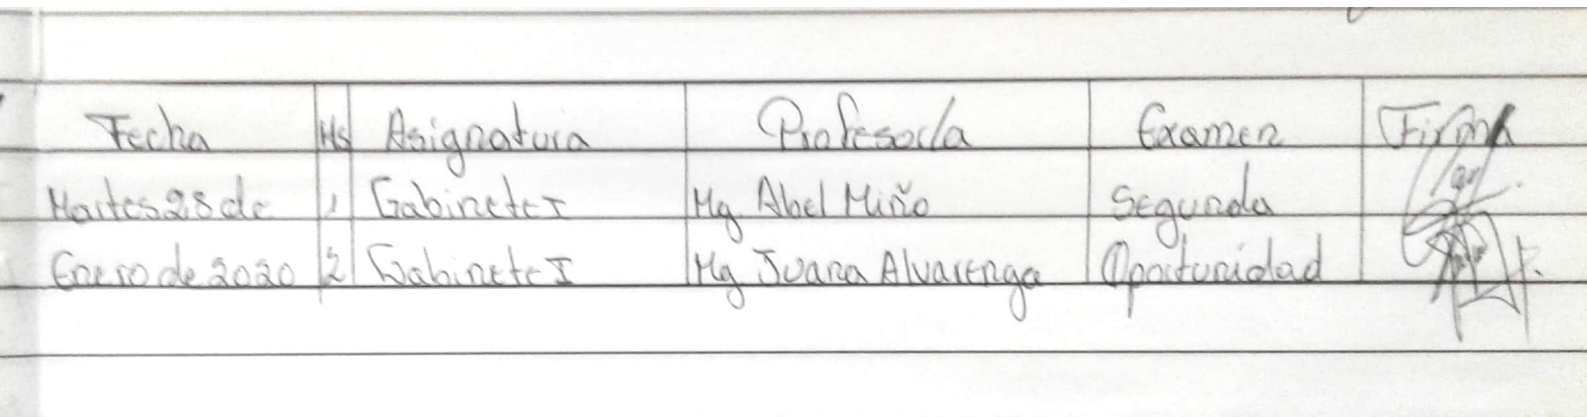 Fecha Hs Asignatura Profesor/a Examen Firma
Martes 28 de 1 Gabinete I Mg. Abel Miño Segunda
Enero de 2020 2 Gabinete I Mg Juana Alvarenga Oportunidad